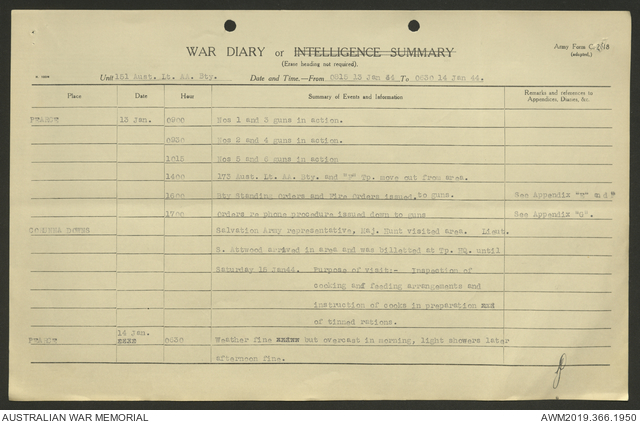 WAR DIARY or INTELLIGENCE SUMMARY
Army Form C.
(adapted.)
(Erase heading not required).
Unit 151 Aust. Lt. AA. Bty. Date and Time.—From 0815 13 Jan 44 To 0630 14 Jan 44.
Place Date Hour Summary of Events and Information Remarks and references to Appendices, Diaries, &c.
13 Jan. 0900 Nos 1 and 3 guns in action.
0930 Nos 2 and 4 guns in action.
1015 Nos 5 and 6 guns in action
1400 173 Aust. Lt. AA. Bty. and Tp. move out from area.
1600 Bty Standing Orders and Fire Orders issued to guns. See Appendix and
1700 Orders re phone procedure issued down to guns See Appendix
DOWNS Salvation Army representative, Maj. Hunt visited area. Lieut.
S. Astwood arrived in area and was billetted at Tp. HQ. until
Saturday 15 Jan44. Purpose of visit:- Inspection of
cooking and feeding arrangements and
instruction of cooks in preparation
of tinned rations.
14 Jan.
0630 Weather fine but overcast in morning, light showers later
afternoon fine.
AUSTRALIAN WAR MEMORIAL AWM2019.366.1950